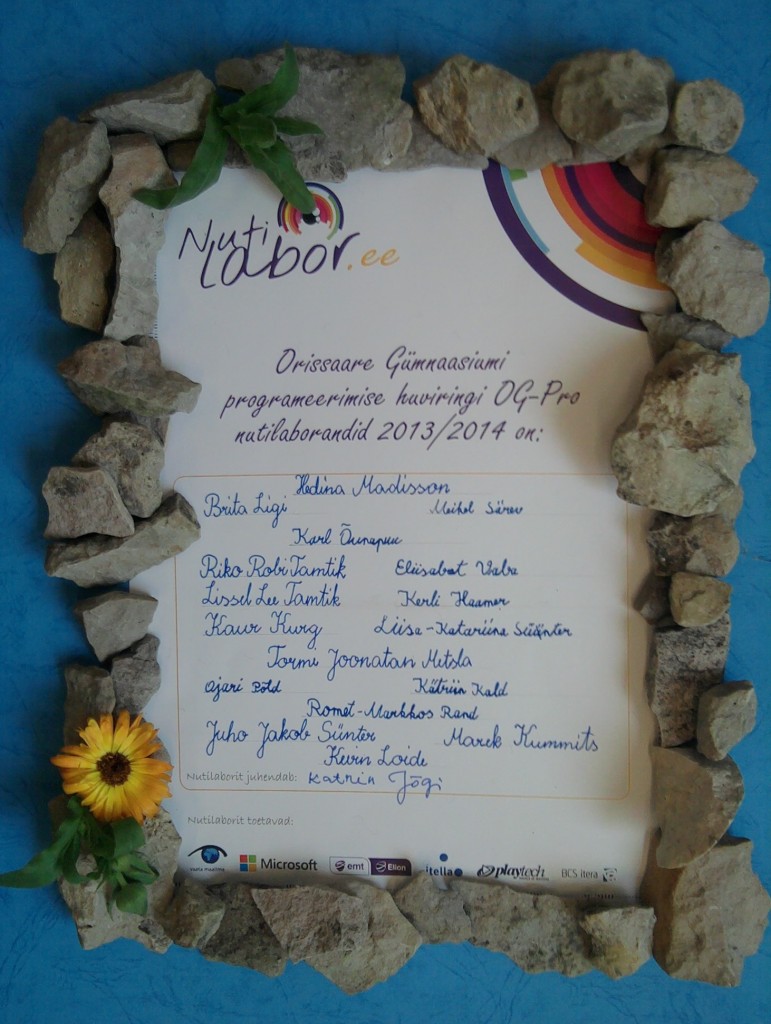 Nuti
Labor.ee
Orissaare Gümnaasiumi
programeerimise huviringi OG-Pro
nutilaborandid 2013/2014 on:
Hedina Madisson
Brita Ligi Meihel Särev
Karl Õunapuu
Riko Robi Tamtik Eliisabet Vaba
Lissel Lee Tamtik Kerli Haamer
Kaur Kurg Liisa-Katariina Süünter
Tormi Joonatan Metsla
Ojari Põld Kätriin Kald
Romet-Markkos Rand
Juho Jakob Sünter Marek Kummits
Kevin Loide
Nutilaborit juhendab: Katrin Jõgi
Nutilaborit toetavad:
Microsoft emt Elion itella playtech BCS itera